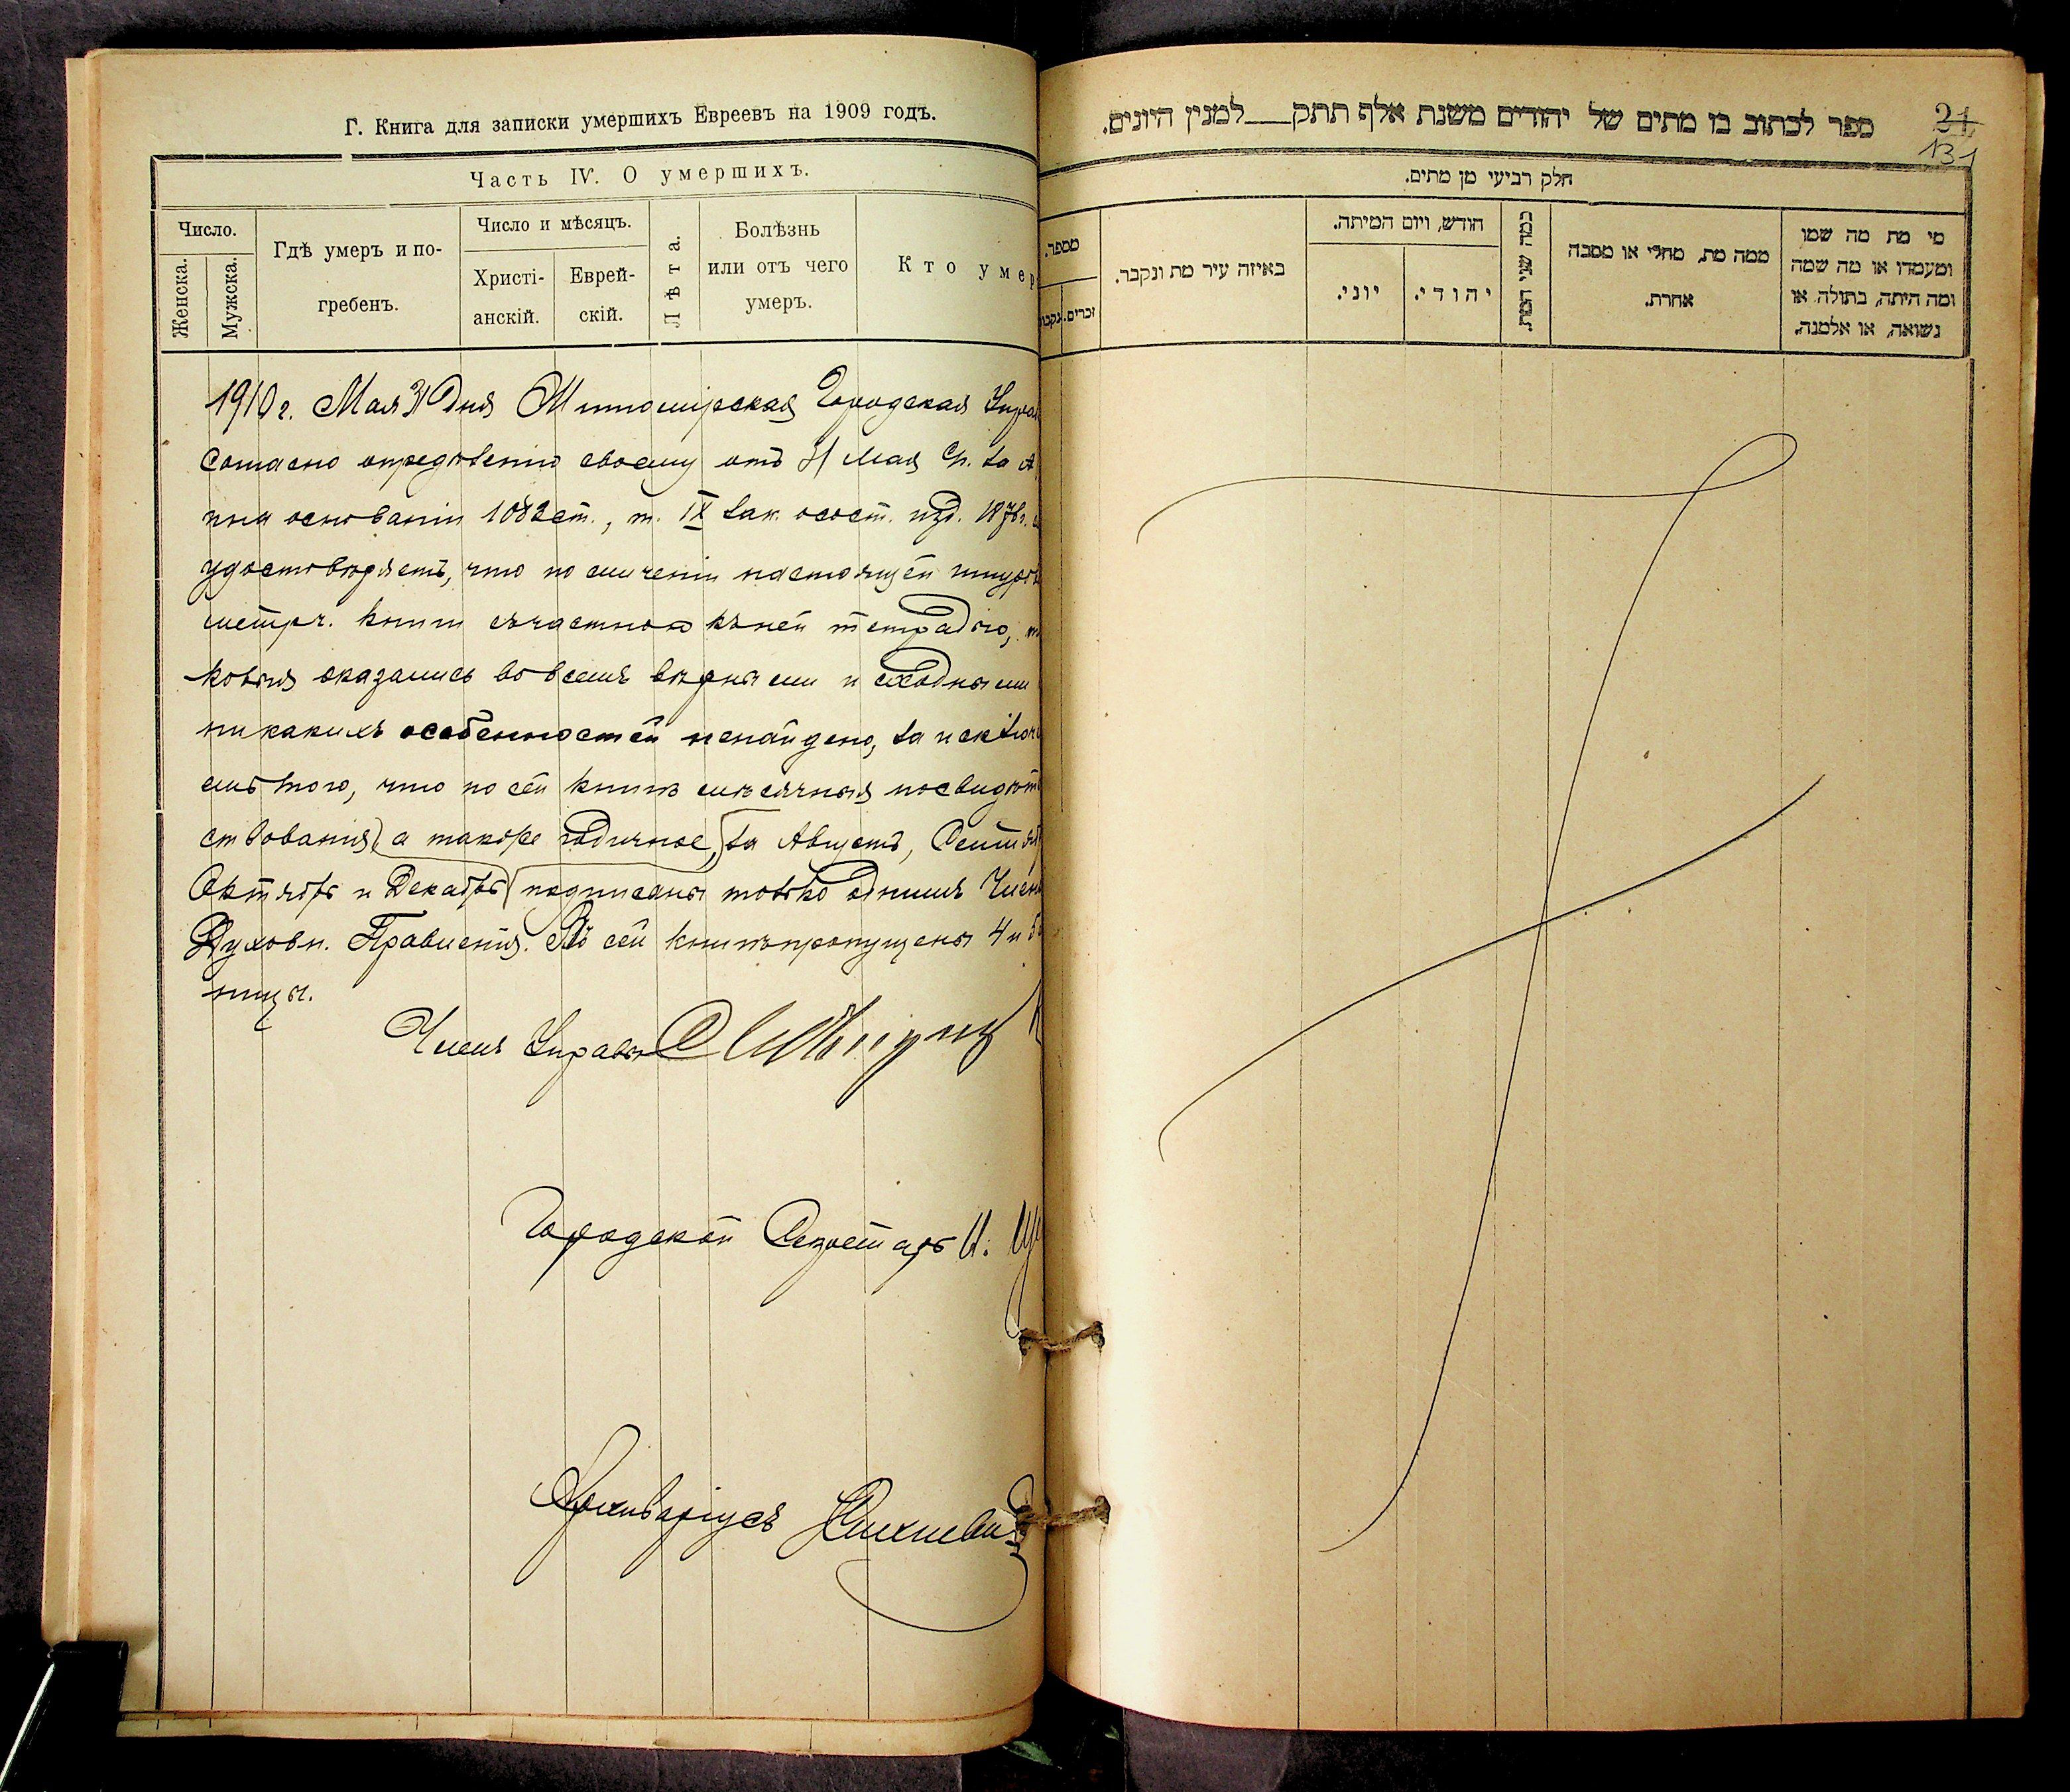 Г. Книга для записки умершихъ Евреевъ на 1909 годъ.
Часть IV. О умершихъ.
Число.
Женска.
Мужска.
Гдѣ умеръ и по-
гребенъ.
Число и мѣсяцъ.
Христі-
анскій.
Еврей-
скій.
Лѣта.
Болѣзнь
или отъ чего
умеръ.
Кто умер
1910 г. Мая 31 дня Житомирская Городская Управ
согласно опредѣленію своему отъ 31 Мая
на основаніи 1082 ст., т. IX Зак. о сост. изд. 1876 г.
удостовѣряетъ, что по сличеніи настоящей шнуров
метрч. книги съ частною къ ней тетрадью,
ковыя оказались во всемъ вѣрными и сходными
никакихъ особенностей ненайдено, за исключ
емъ того, что по сей книгѣ мѣсячныя посвидѣт
ствованія, а также годичное, за Августъ, Сентябр
Октябрь и Декабрь подписаны только однимъ Член
Духовн. Правленія. Въ сей книгѣ пропущены 4 и 5
ницы.
Членъ Управы
Городской Секретарь И.
Архиваріусъ
ספר לכתוב בו מתים של יהודים משנת אלף תתק ___ למנין היונים.
21
131
חלק רביעי מן מתים.
מספר.
זכרים. נקבו
באיזה עיר מת ונקבר.
חודש, ויום המיתה.
יוני.
יהודי.
כמה שני המת.
ממה מת, מחלי או מסבה
אחרת.
מי מת מה שמו
ומעמדו או מה שמה
ומה היתה, בתולה או
נשואה, או אלמנה.